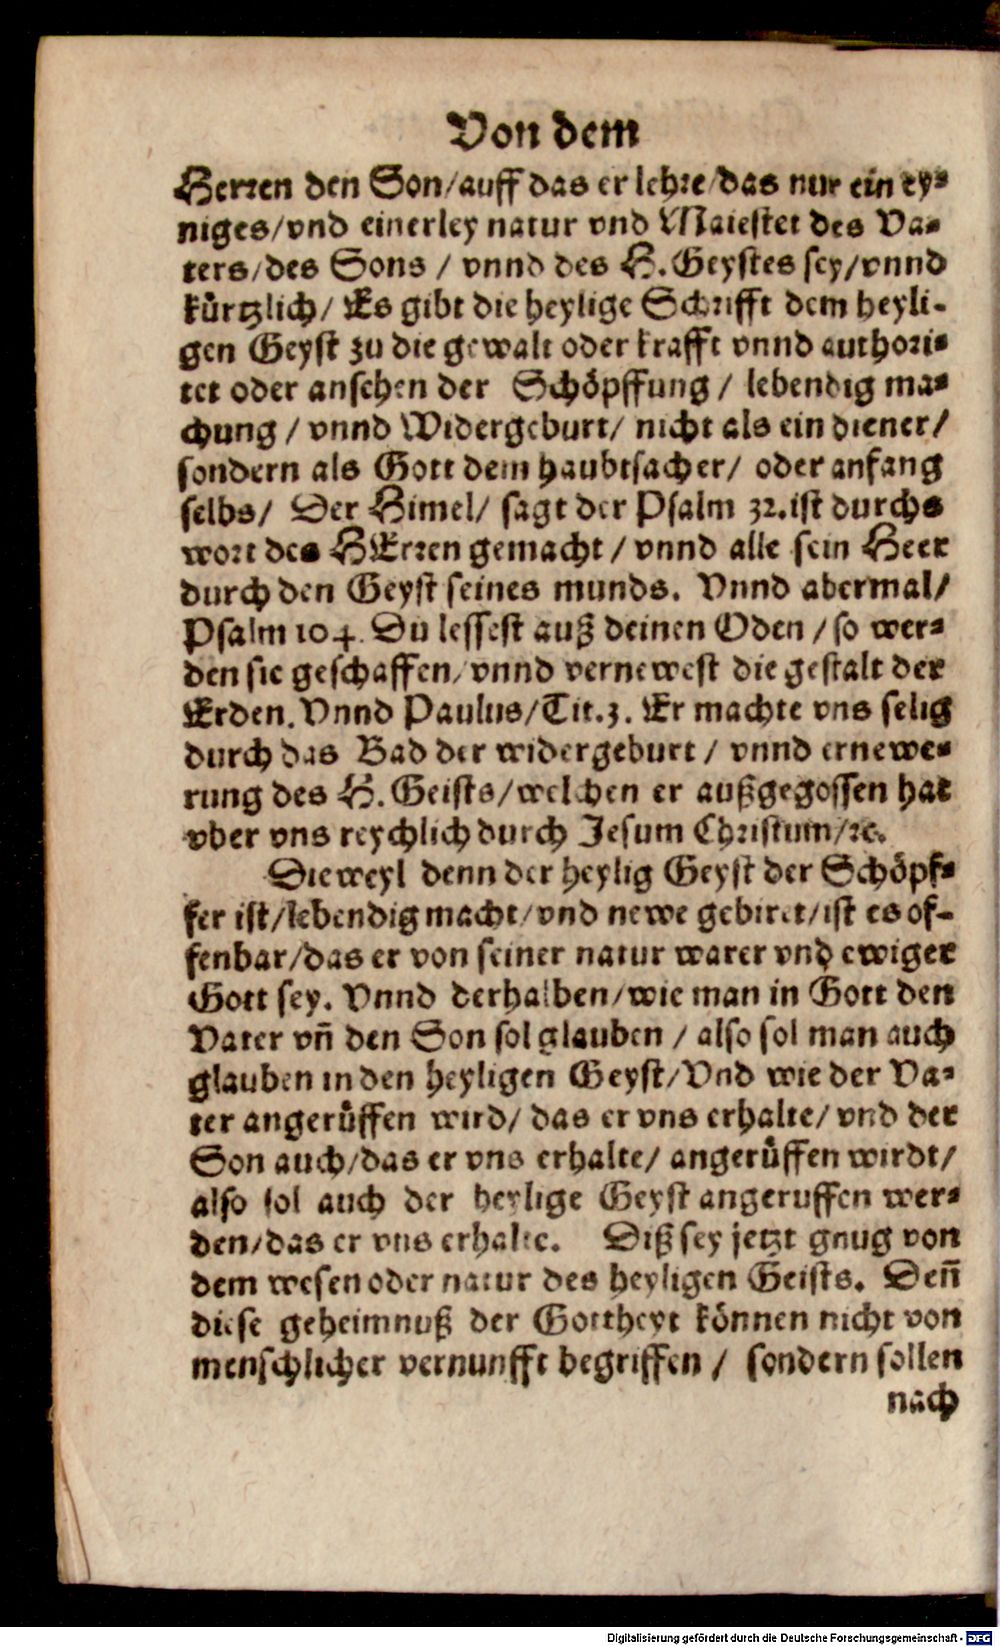 Von dem
Herren den Son/auff das er lehre/das nur ein ey-
niges/vnd einerley natur vnd Maiestet des Va-
ters/des Sons / vnnd des H. Geystes sey/vnnd
kürtzlich/ Es gibt die heylige Schrifft dem heyli-
gen Geyst zu die gewalt oder krafft vnnd authori-
tet oder ansehen der Schöpffung / lebendig ma-
chung / vnnd Widergeburt/ nicht als ein diener/
sondern als Gott dem haubtsacher/ oder anfang
selbs/ Der Himel/ sagt der Psalm 32. ist durchs
wort des HErren gemacht / vnnd alle sein Heer
durch den Geyst seines munds. Vnnd abermal/
Psalm 104. Du lessest auß deinen Oden / so wer-
den sie geschaffen/vnnd vernewest die gestalt der
Erden. Vnnd Paulus/Tit.3. Er machte vns selig
durch das Bad der widergeburt / vnnd ernewe-
rung des H. Geists/welchen er außgegossen hat
vber vns reychlich durch Jesum Christum/ꝛc.
Dieweyl denn der heylig Geyst der Schöpf-
fer ist/lebendig macht/vnd newe gebiret/ist es of-
fenbar/das er von seiner natur warer vnd ewiger
Gott sey. Vnnd derhalben/wie man in Gott den
Vater vn̄ den Son sol glauben / also sol man auch
glauben in den heyligen Geyst/Vnd wie der Va-
ter angerůffen wird/ das er vns erhalte/ vnd der
Son auch/das er vns erhalte/ angerůffen wirdt/
also sol auch der heylige Geyst angeruffen wer-
den/das er vns erhalte. Diß sey jetzt gnug von
dem wesen oder natur des heyligen Geists. Den̄
diese geheimnuß der Gottheyt können nicht von
menschlicher vernunfft begriffen / sondern sollen
nach
Digitalisierung gefördert durch die Deutsche Forschungsgemeinschaft - DFG